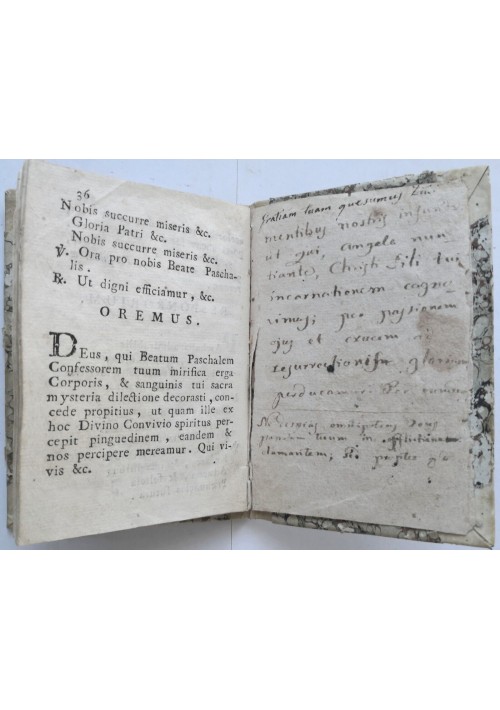 36
Nobis succurre miseris &c.
Gloria Patri &c.
Nobis succurre miseris &c.
V. Ora pro nobis Beate Pascha-
lis.
R. Ut digni efficiamur, &c.
OREMUS.
DEus, qui Beatum Paschalem
Confessorem tuum mirifica erga
Corporis, & sanguinis tui sacra
mysteria dilectione decorasti, con-
cede propitius, ut quam ille ex
hoc Divino Convivio spiritus per-
cepit pinguedinem, eandem &
nos percipere mereamur. Qui vi-
vis &c.
Gratiam tuam quesumus
mentibus nostris
ut qui, angelo nun
tiante, Christi Filii tui,
incarnationem cogno
vimus; per passionem
ejus et crucem ad
resurrectionis gloriam
perducamur. Per
omnipotens Deus
populum tuum in afflictione
clamantem,